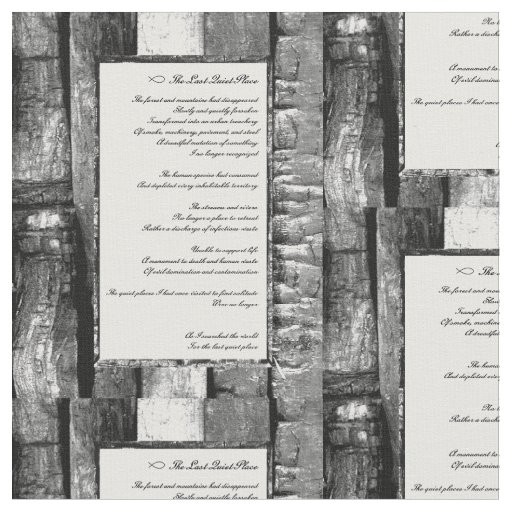 The Last Quiet Place
The forest and mountains had disappeared
Slowly and quietly forsaken
Transformed into an urban treachery
Of smoke, machinery, pavement, and steel
A dreadful mutation of something
I no longer recognized
The human species had consumed
And depleted every inhabitable territory
The streams and rivers
No longer a place to retreat
Rather a discharge of infectious waste
Unable to support life
A monument to death and human waste
Of evil domination and contamination
The quiet places I had once visited to find solitude
Were no longer
As I searched the world
For the last quiet place
The Last Quiet Place
The forest and mountains had disappeared
Slowly and quietly forsaken
No lo
Rather a discha
A monument to
Of evil domina
The quiet places I had once
The La
The forest and
Slowl
Transformed
Of smoke, machine
A dreadful
The huma
And depleted every
The
No lo
Rather a discha
A monument to
Of evil domina
The quiet places I had once